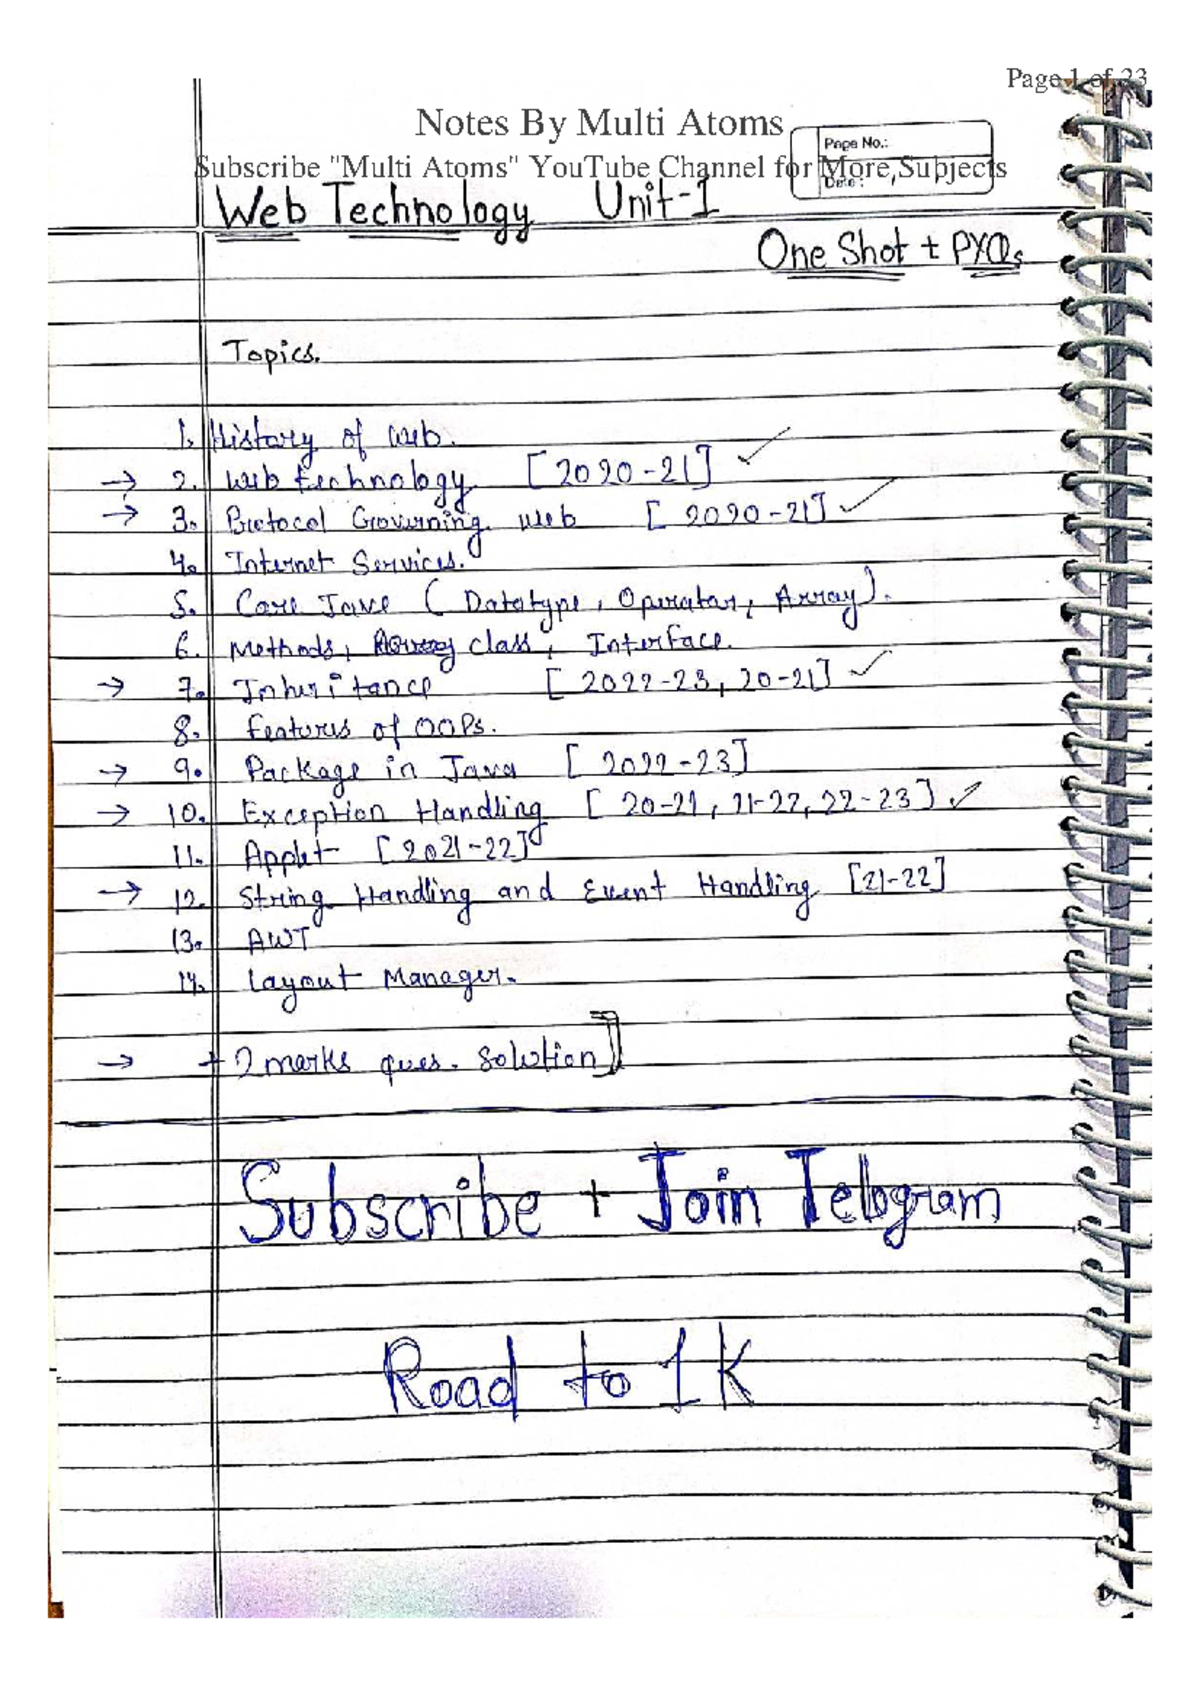 Page 1 of 23
Notes By Multi Atoms
Page No.:
Subscribe "Multi Atoms" YouTube Channel for More Subjects
Date :
Web Technology Unit-1
One Shot + PYQs
Topics.
1. History of web.
→ 2. Web technology [2020-21] ✓
→ 3. Protocol Governing web [2020-21] ✓
4. Internet Services.
5. Core Java (Datatype, Operator, Array).
6. Methods, class, Interface.
→ 7. Inheritance [2022-23, 20-21] ✓
8. Features of OOPs.
→ 9. Package in Java [2022-23]
→ 10. Exception Handling [20-21, 21-22, 22-23] ✓
11. Applet [2021-22]
→ 12. String Handling and Event Handling [21-22]
13. AWT
14. Layout Manager.
→ + 2 marks ques. Solution]
Subscribe + Join Telegram
Road to 1K